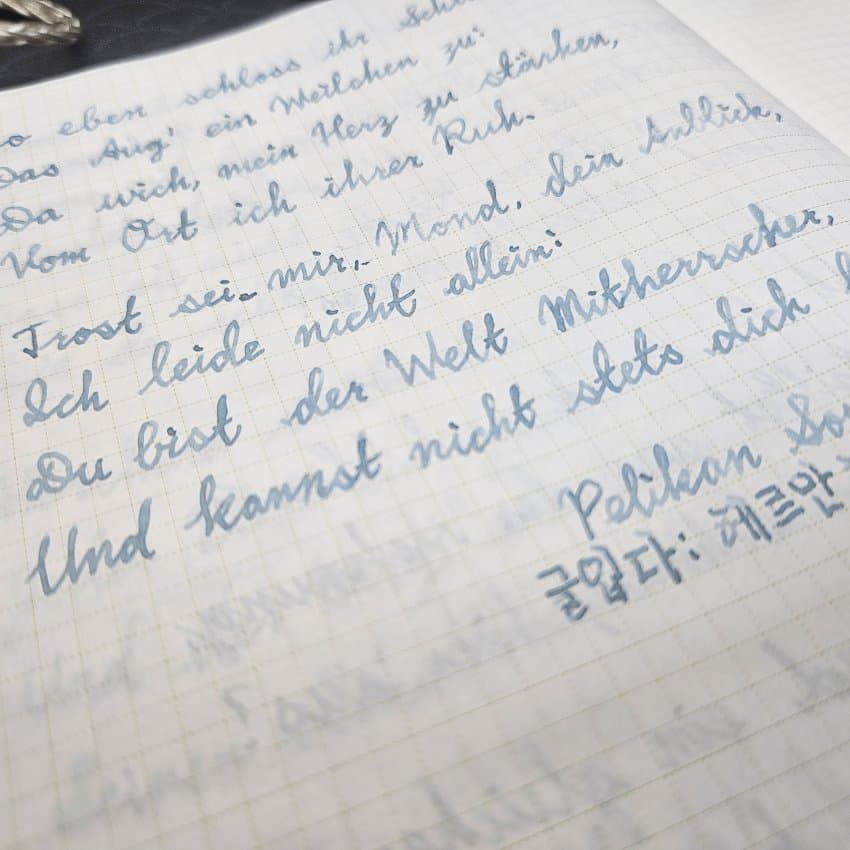 eben schloss ihr
Das Aug' ein Weilchen zu:
Da wich, mein Herz zu stärken,
Vom Ort ich ihrer Ruh.
Trost sei mir, Mond, dein Anblick,
Ich leide nicht allein:
Du bist der Welt Mitherrscher,
Und kannst nicht stets dich
Pelikan
글입다: 헤르만